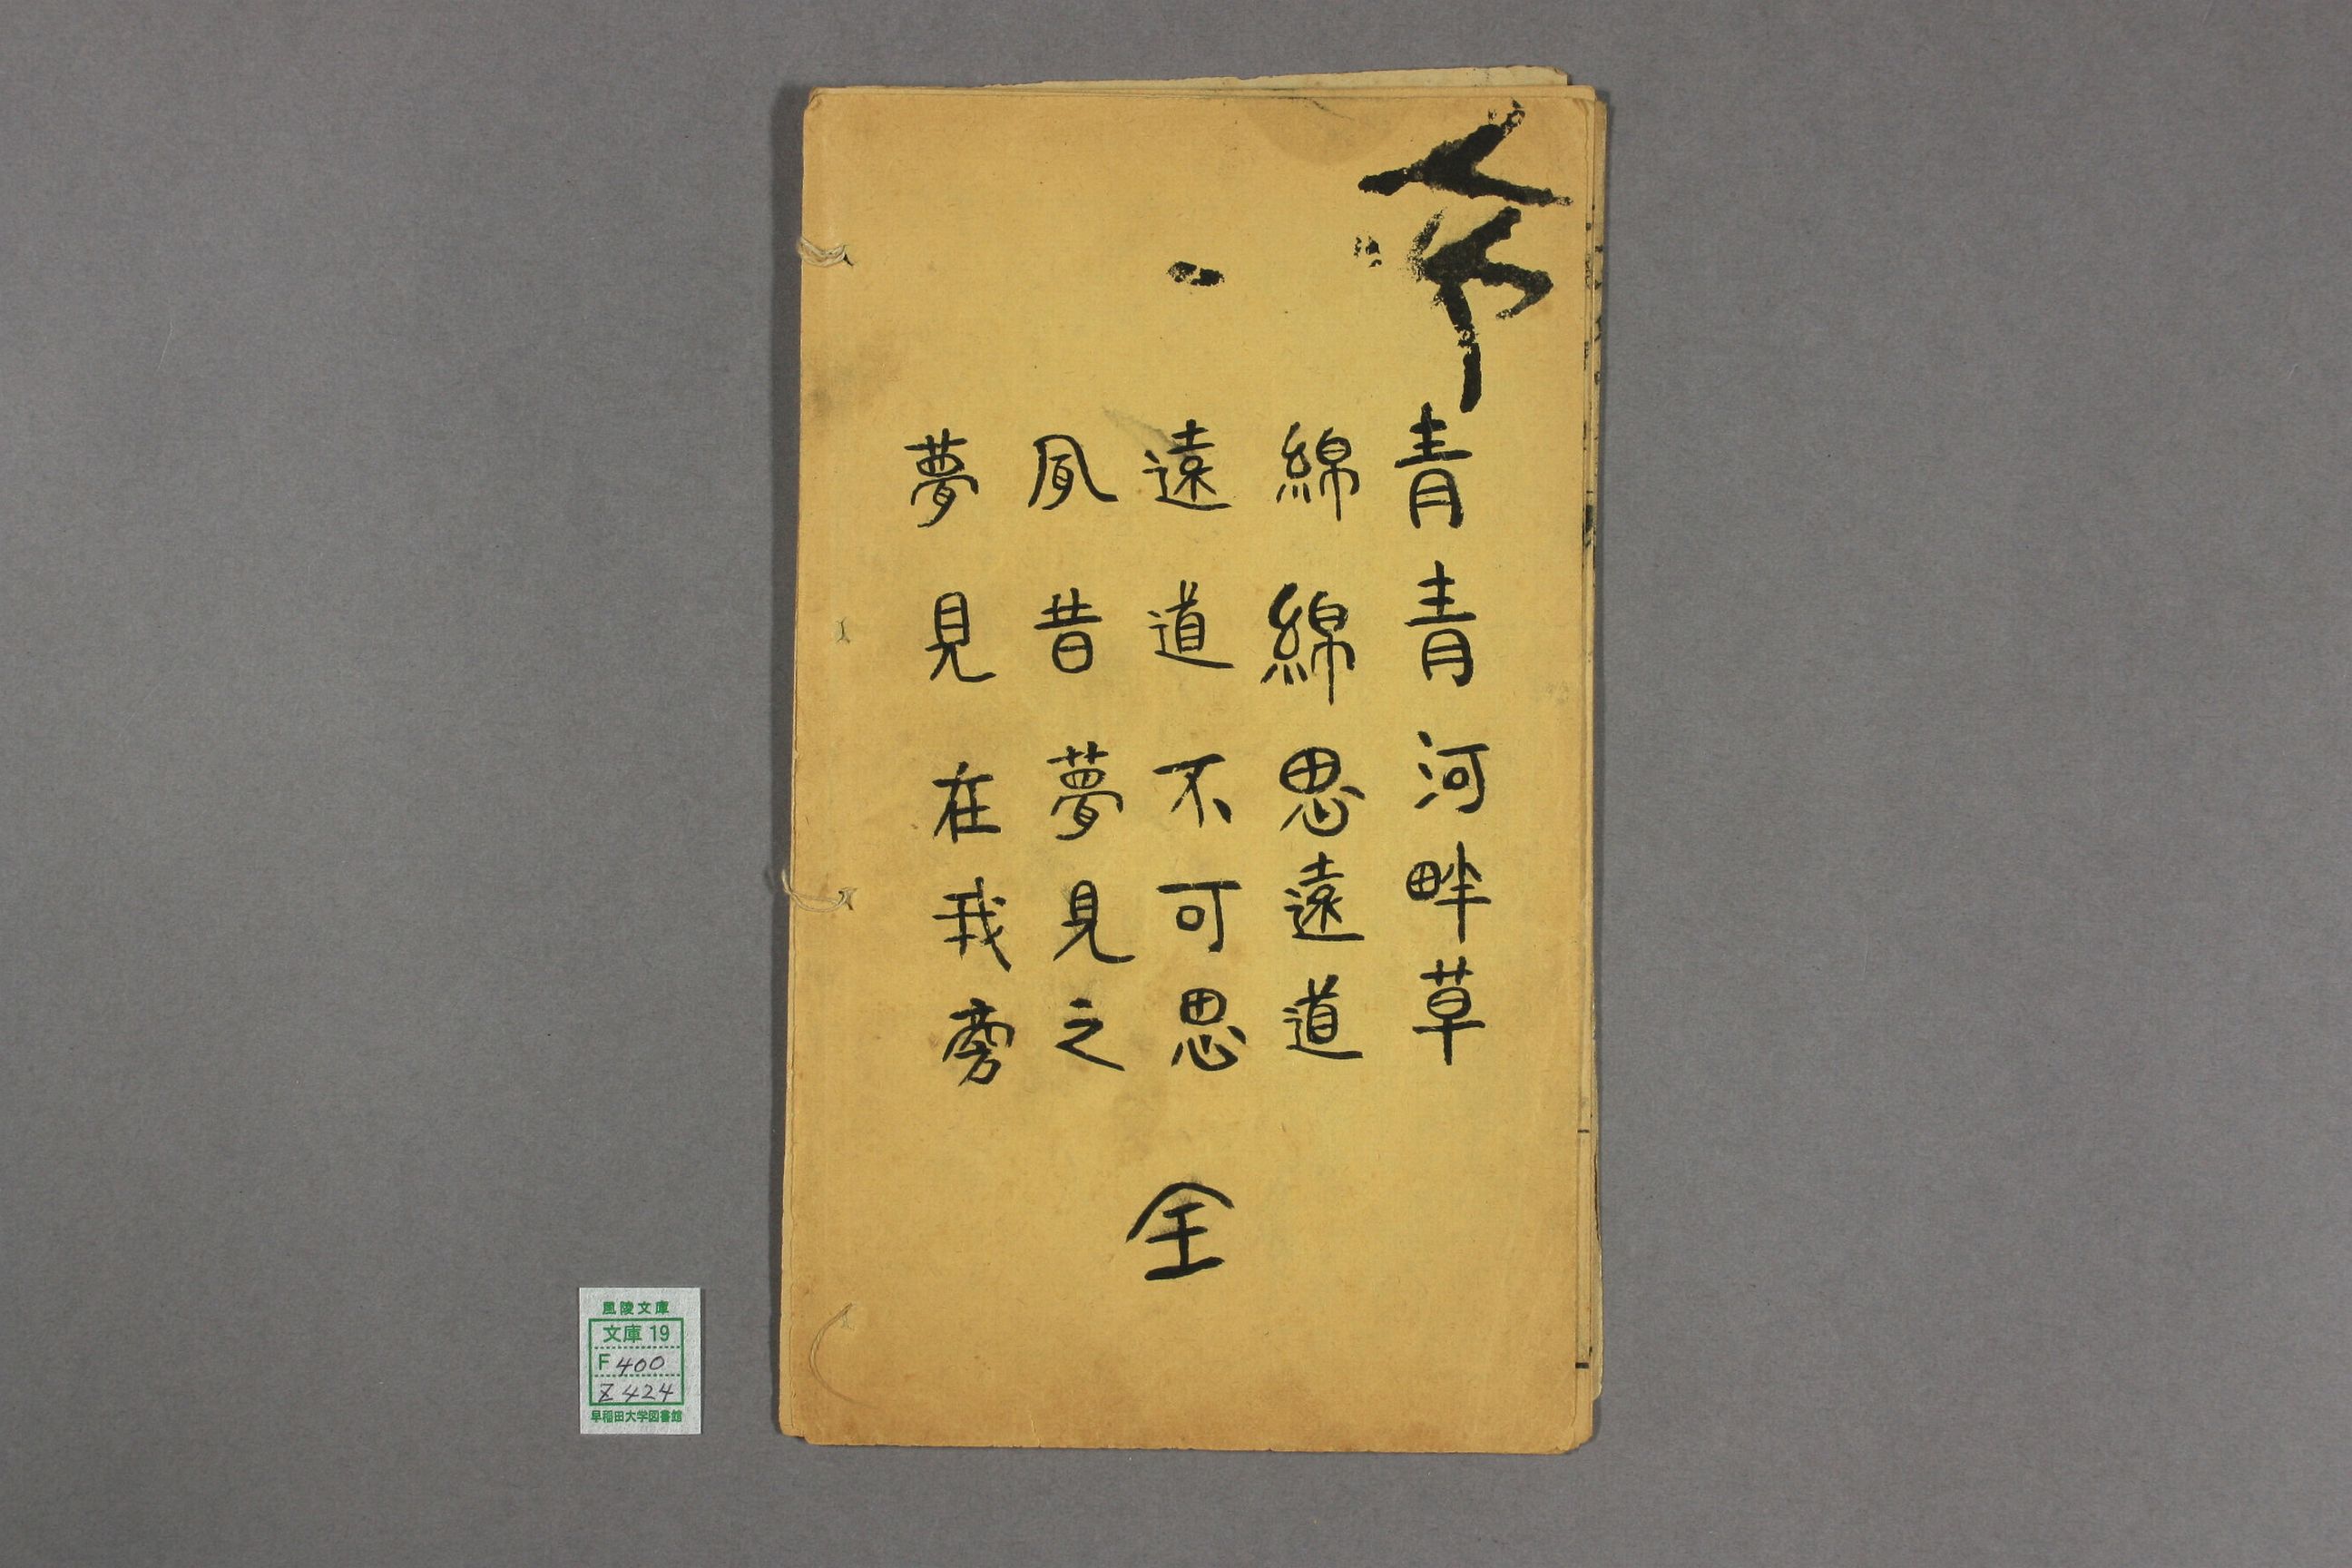 青青河畔草
綿綿思遠道
遠道不可思
凬昔夢見之
夢見在我旁
全
風陵文庫
文庫 19
F 400
Z 424
早稲田大学図書館